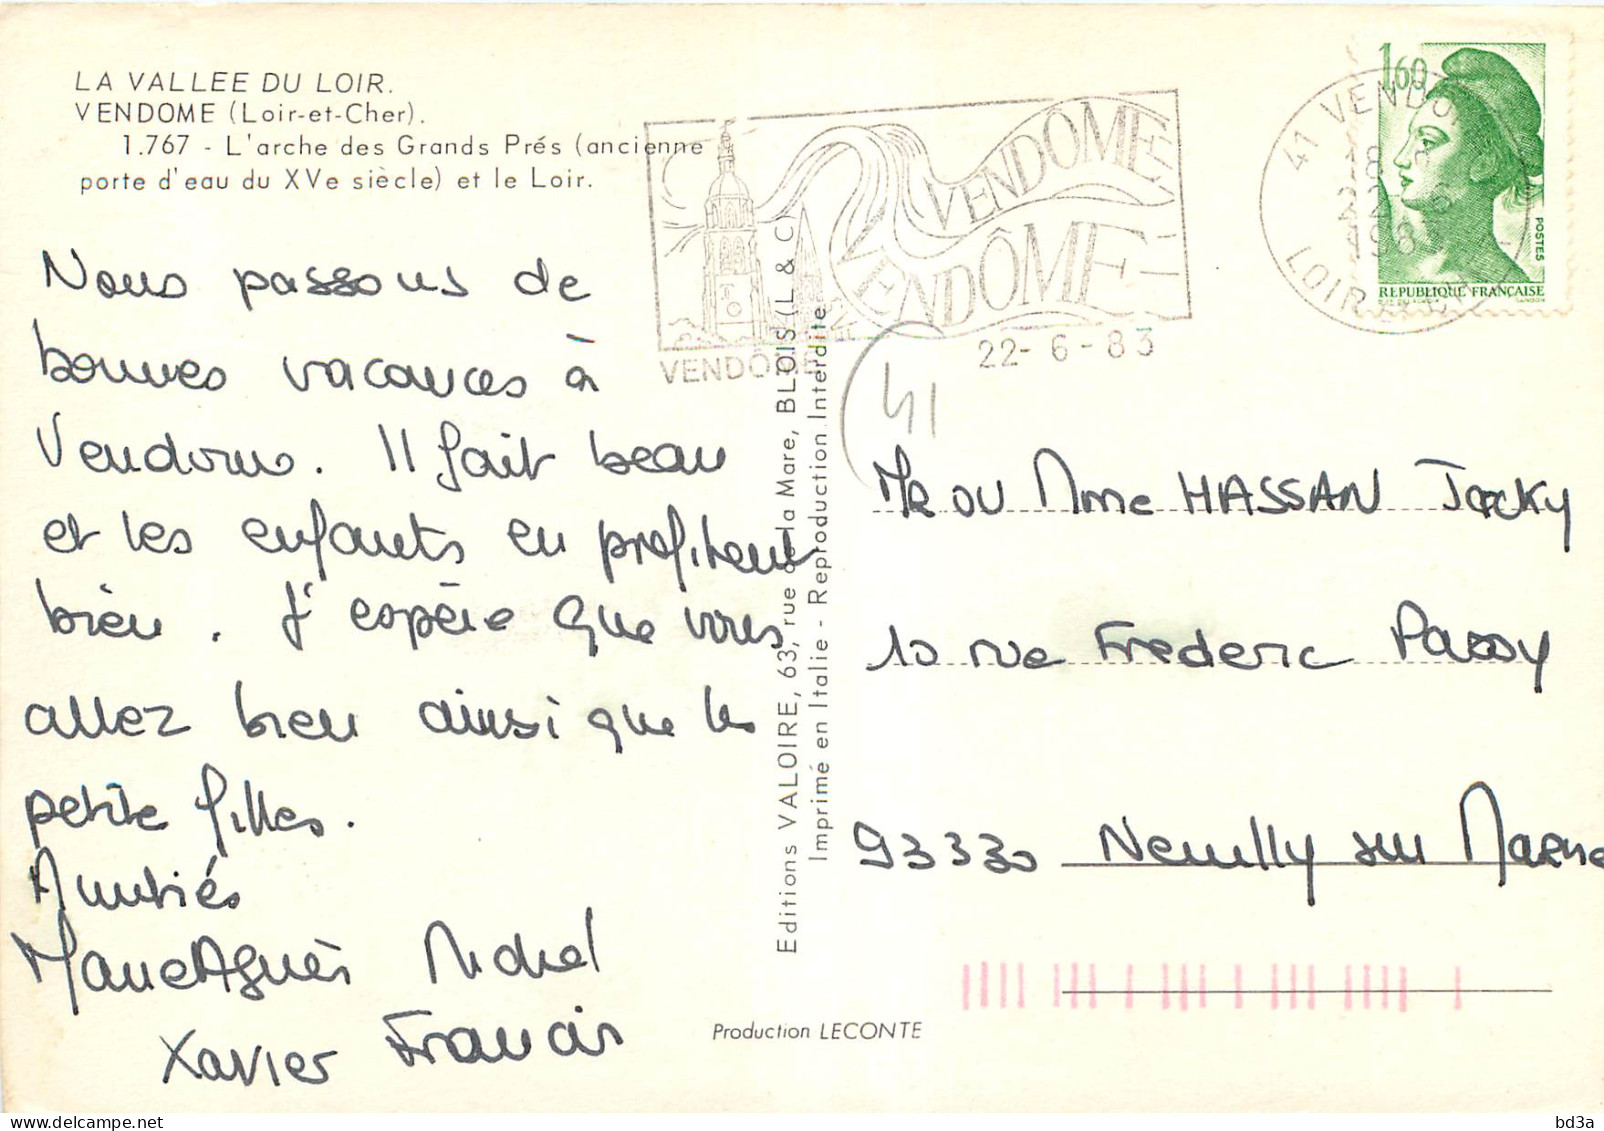 LA VALLEE DU LOIR.
VENDOME (Loir-et-Cher).
1.767 - L'arche des Grands Prés (ancienne
porte d'eau du XVe siècle) et le Loir.
Nous passons de
bonnes vacances à
Vendome. Il fait beau
et les enfants en profitent
bien. J'espère que vous
allez bien ainsi que les
petite filles.
Amitiés
Marie Agnès Michel
Xavier Francis
Editions VALOIRE, 63, rue de la Mare, BLOIS (L & C)
Imprimé en Italie - Reproduction Interdite
Production LECONTE
VENDÔME
VENDÔME
VENDÔME
22-6-83
41 VENDOME
LOIR
1,60
POSTES
REPUBLIQUE FRANÇAISE
GANDON
41
Mr ou Mme HASSAN Jacky
10 rue Frederic Passy
93330 Neuilly sur Marne
delcampe.net
bd3a